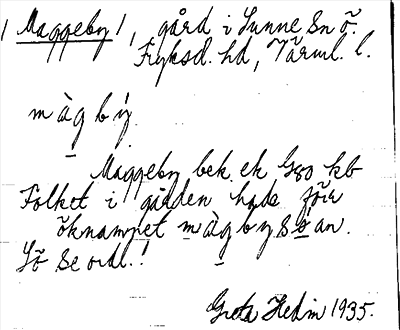 / Maggeby /, gård i Sunne Sn ö.
Fryksd. hd, Värml. l.
màgbý
Maggeby bek. ek. G80 kb
Folket i gården hade förr
öknamnet màgbysøan.
Sö se ord.!
Greta Hedin 1935.